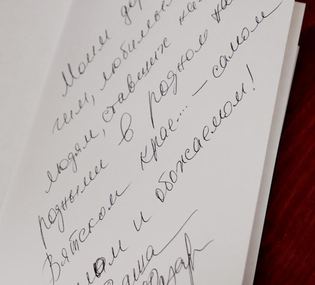 Моим до
гим, любимым
людям, ставших на
родными в родном на
Вятском крае... – самом
лом и обожаемом!
аша